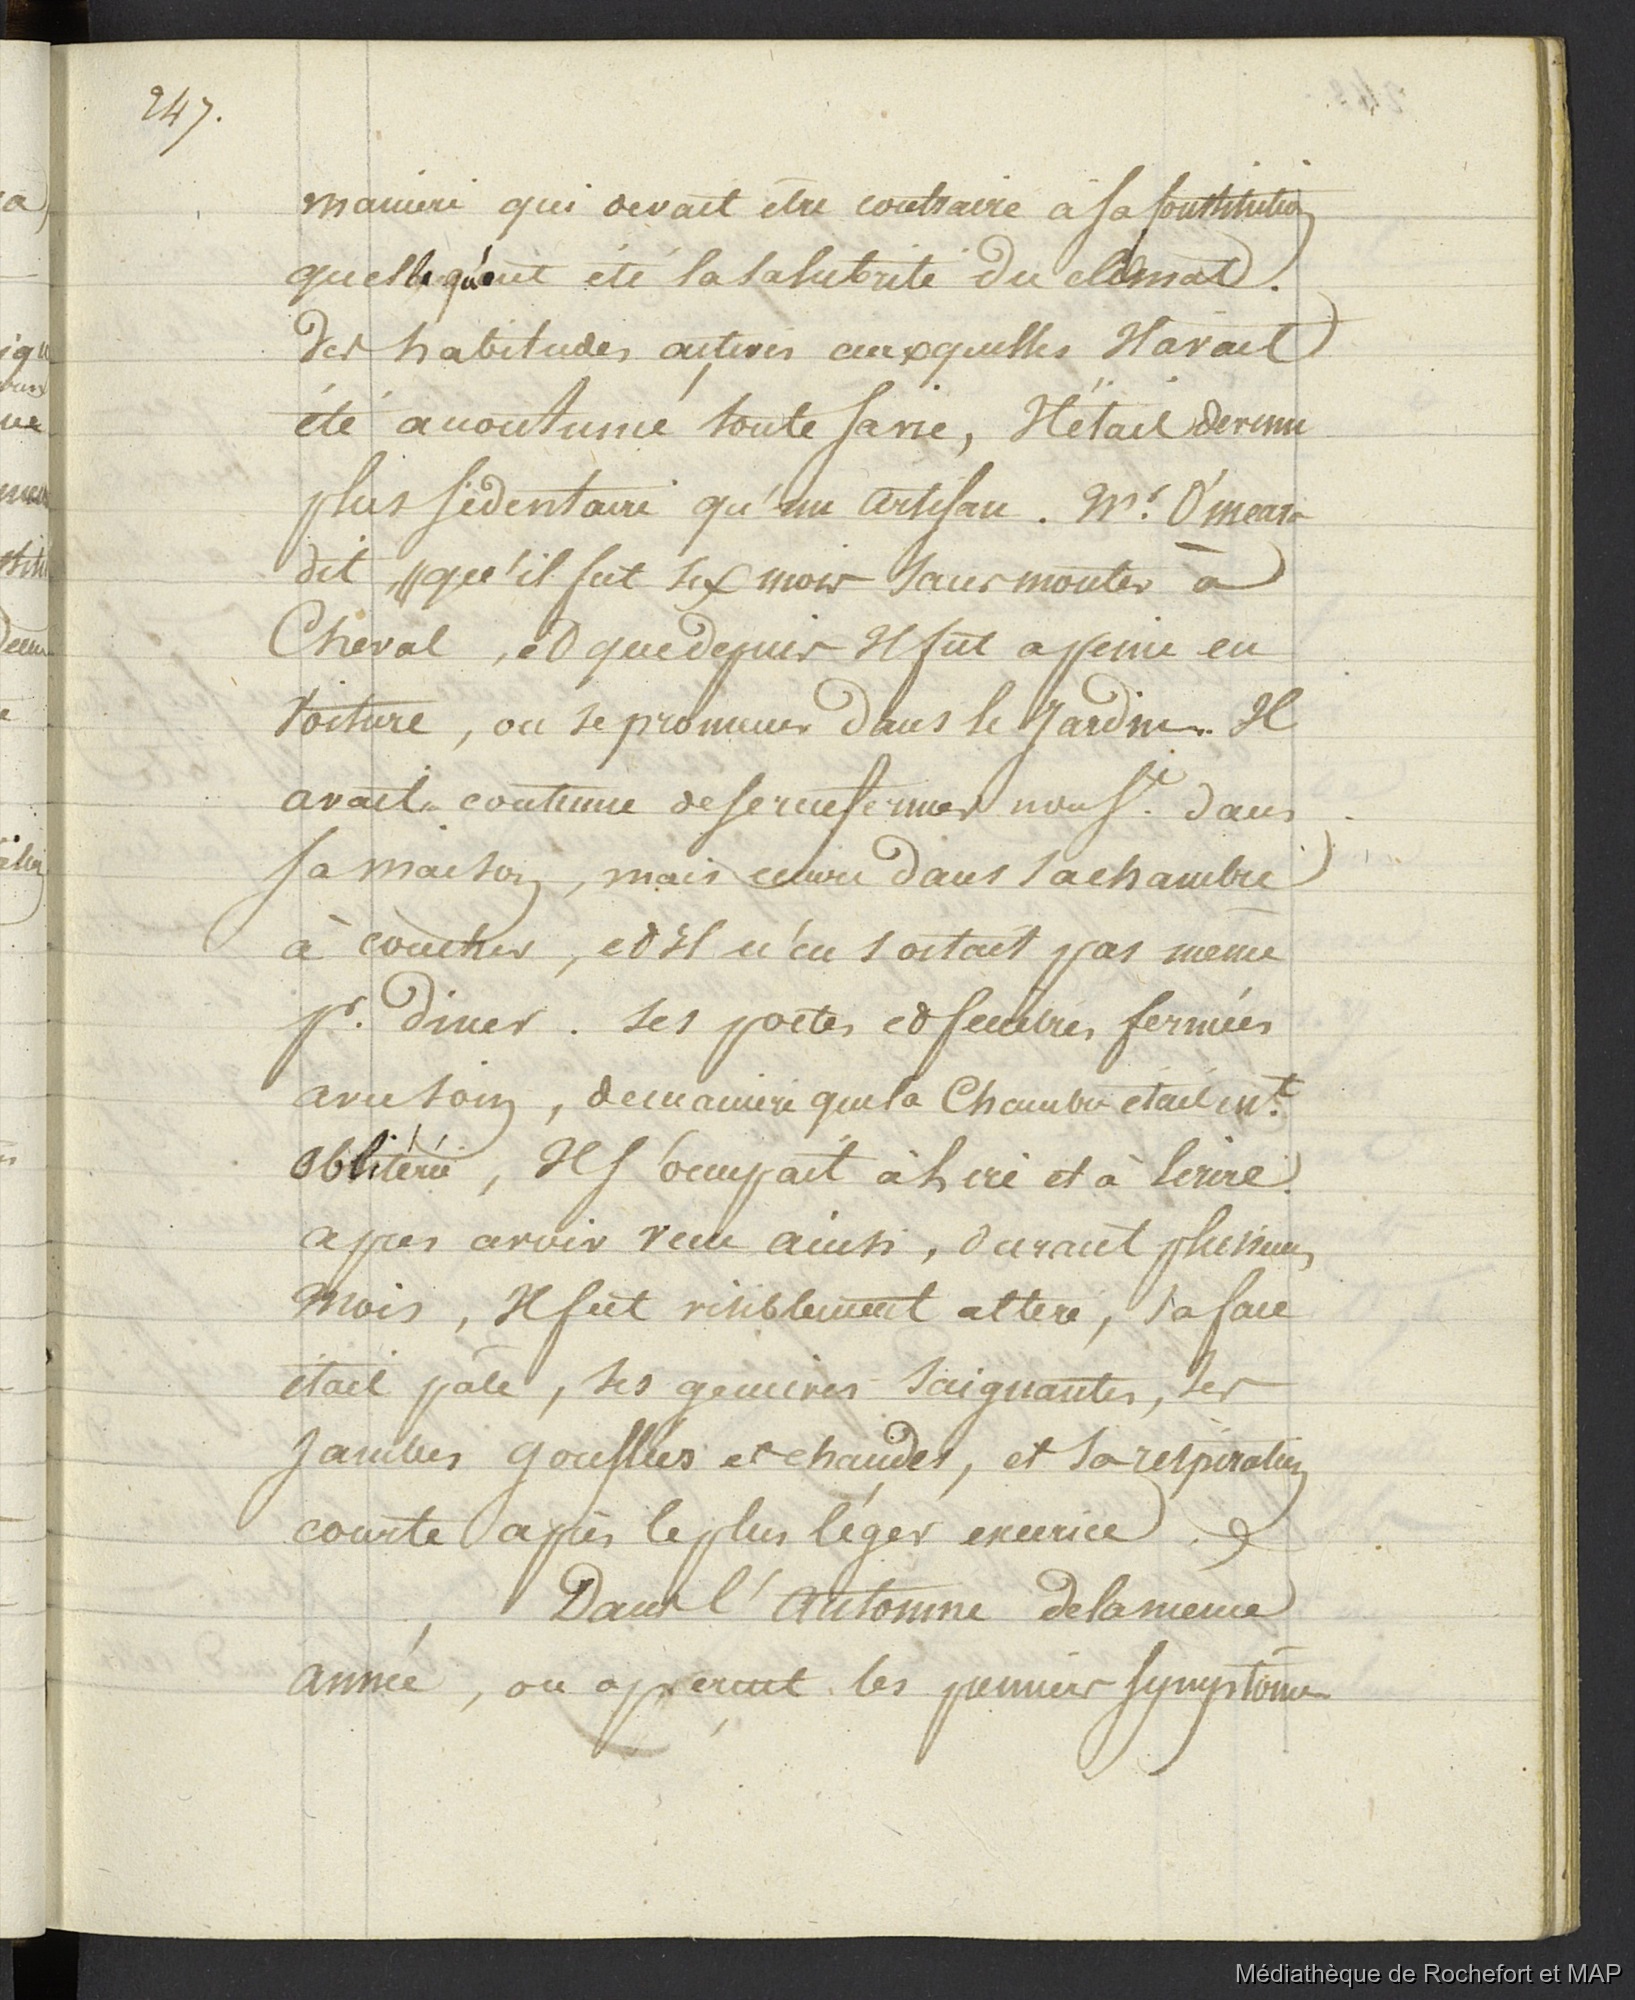 247.
maniere qui devait être contraire à sa constitution
quelle qu'eut été la salubrité du climat.
Des habitudes actives auxquelles Il avait
été accoutumé toute sa vie, Il était devenu
plus sédentaire qu'un artisan. Mr. O'meara
dit, "qu'il fut six mois sans monter à
Cheval, et que depuis Il fut a peine en
voiture, ou se promener dans le Jardin. Il
avait coutume de se renfermer non st. dans
sa maison, mais encore dans sa chambre
à coucher, et Il n'en sortait pas même
pr. diner. ses portes et fenêtres fermées
avec soin, de maniere que la Chambre était ent.
oblitérée, Il s'occupait à lire et à écrire.
apres avoir vecu ainsi, durant plusieurs
mois, Il fut visiblement alteré, sa face
était pâle, ses gencives saignantes, ses
Jambes gonflées et chaudes, et sa respiration
courte après le plus léger exercice.
Dans l'Automne de la même
année, on apperçut les premiers symptômes
Médiathèque de Rochefort et MAP